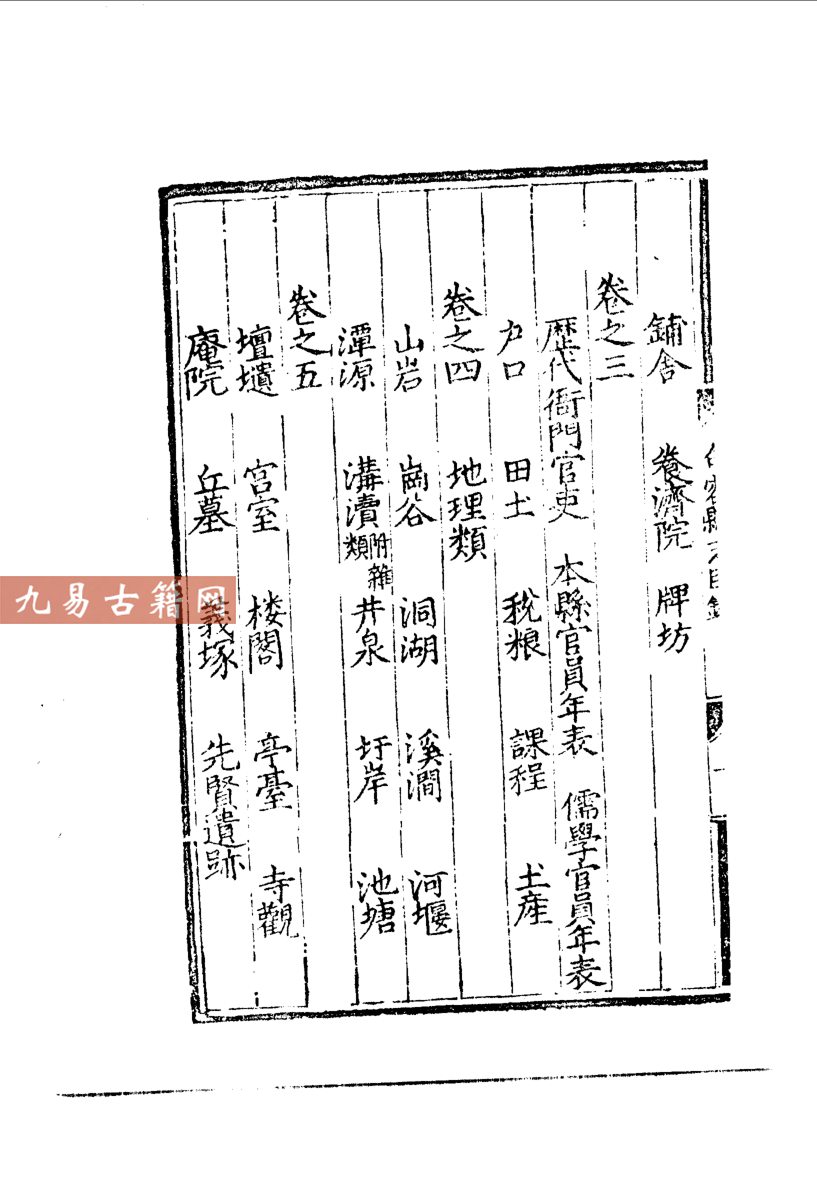 鋪舍 養濟院 牌坊
卷之三
歷代衙門官吏 本縣官員年表 儒學官員年表
户口 田土 稅粮 課程 土産
卷之四 地理類
山岩 崗谷 洞湖 溪澗 河堰
潭源 溝瀆附雜類 井泉 圩岸 池塘
卷之五
壇壝 宫室 楼閣 亭臺 寺觀
庵院 丘墓 義塚 先賢遺跡
九易古籍网